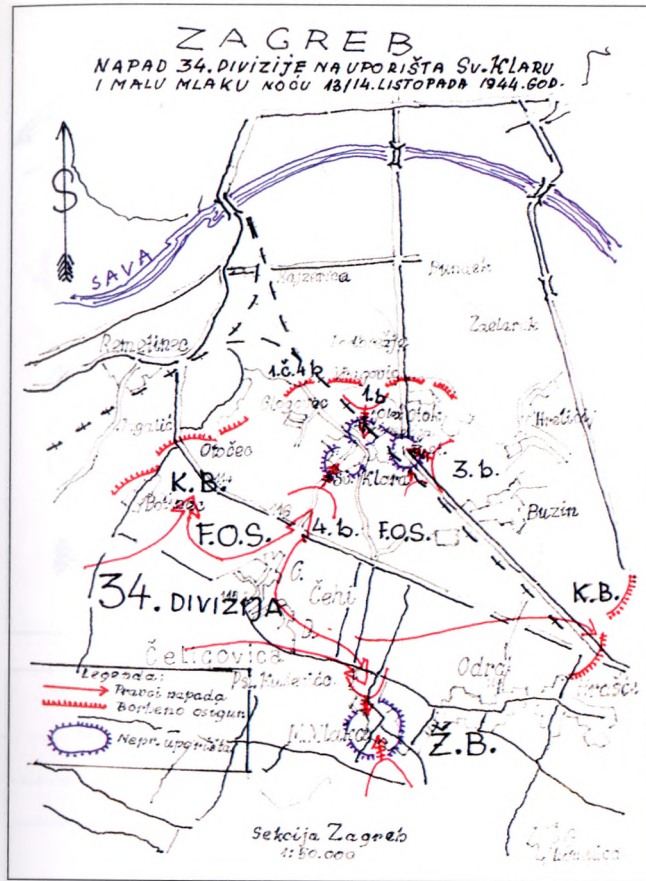 ZAGREB
NAPAD 34. DIVIZIJE NA UPORIŠTA SV. KLARU
I MALU MLAKU NOĆU 13/14. LISTOPADA 1944. GOD.
S
SAVA
Kajzerica
Zaelarek
Remetinec
1.č.4 k
1.b
Blagorec
Otok
Hrelići
Otočec
3.b.
Sv. Klara
K.B.
Buzin
F.O.S.
4.b.
F.O.S.
K.B.
34. DIVIZIJA
Čehi
Odra
Legenda:
Pravci napada
Borbeno osigur.
Nepr. uporišta
M. Mlaka
Ž.B.
Sekcija Zagreb
1:50.000